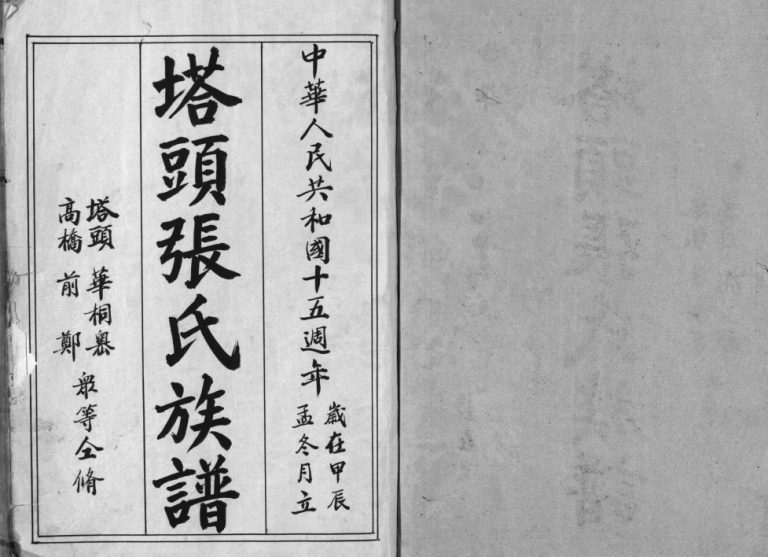 中華人民共和國十五週年
歲在甲辰
孟冬月立
塔頭張氏族譜
塔頭 華桐
高橋 前鄭
衆等仝脩